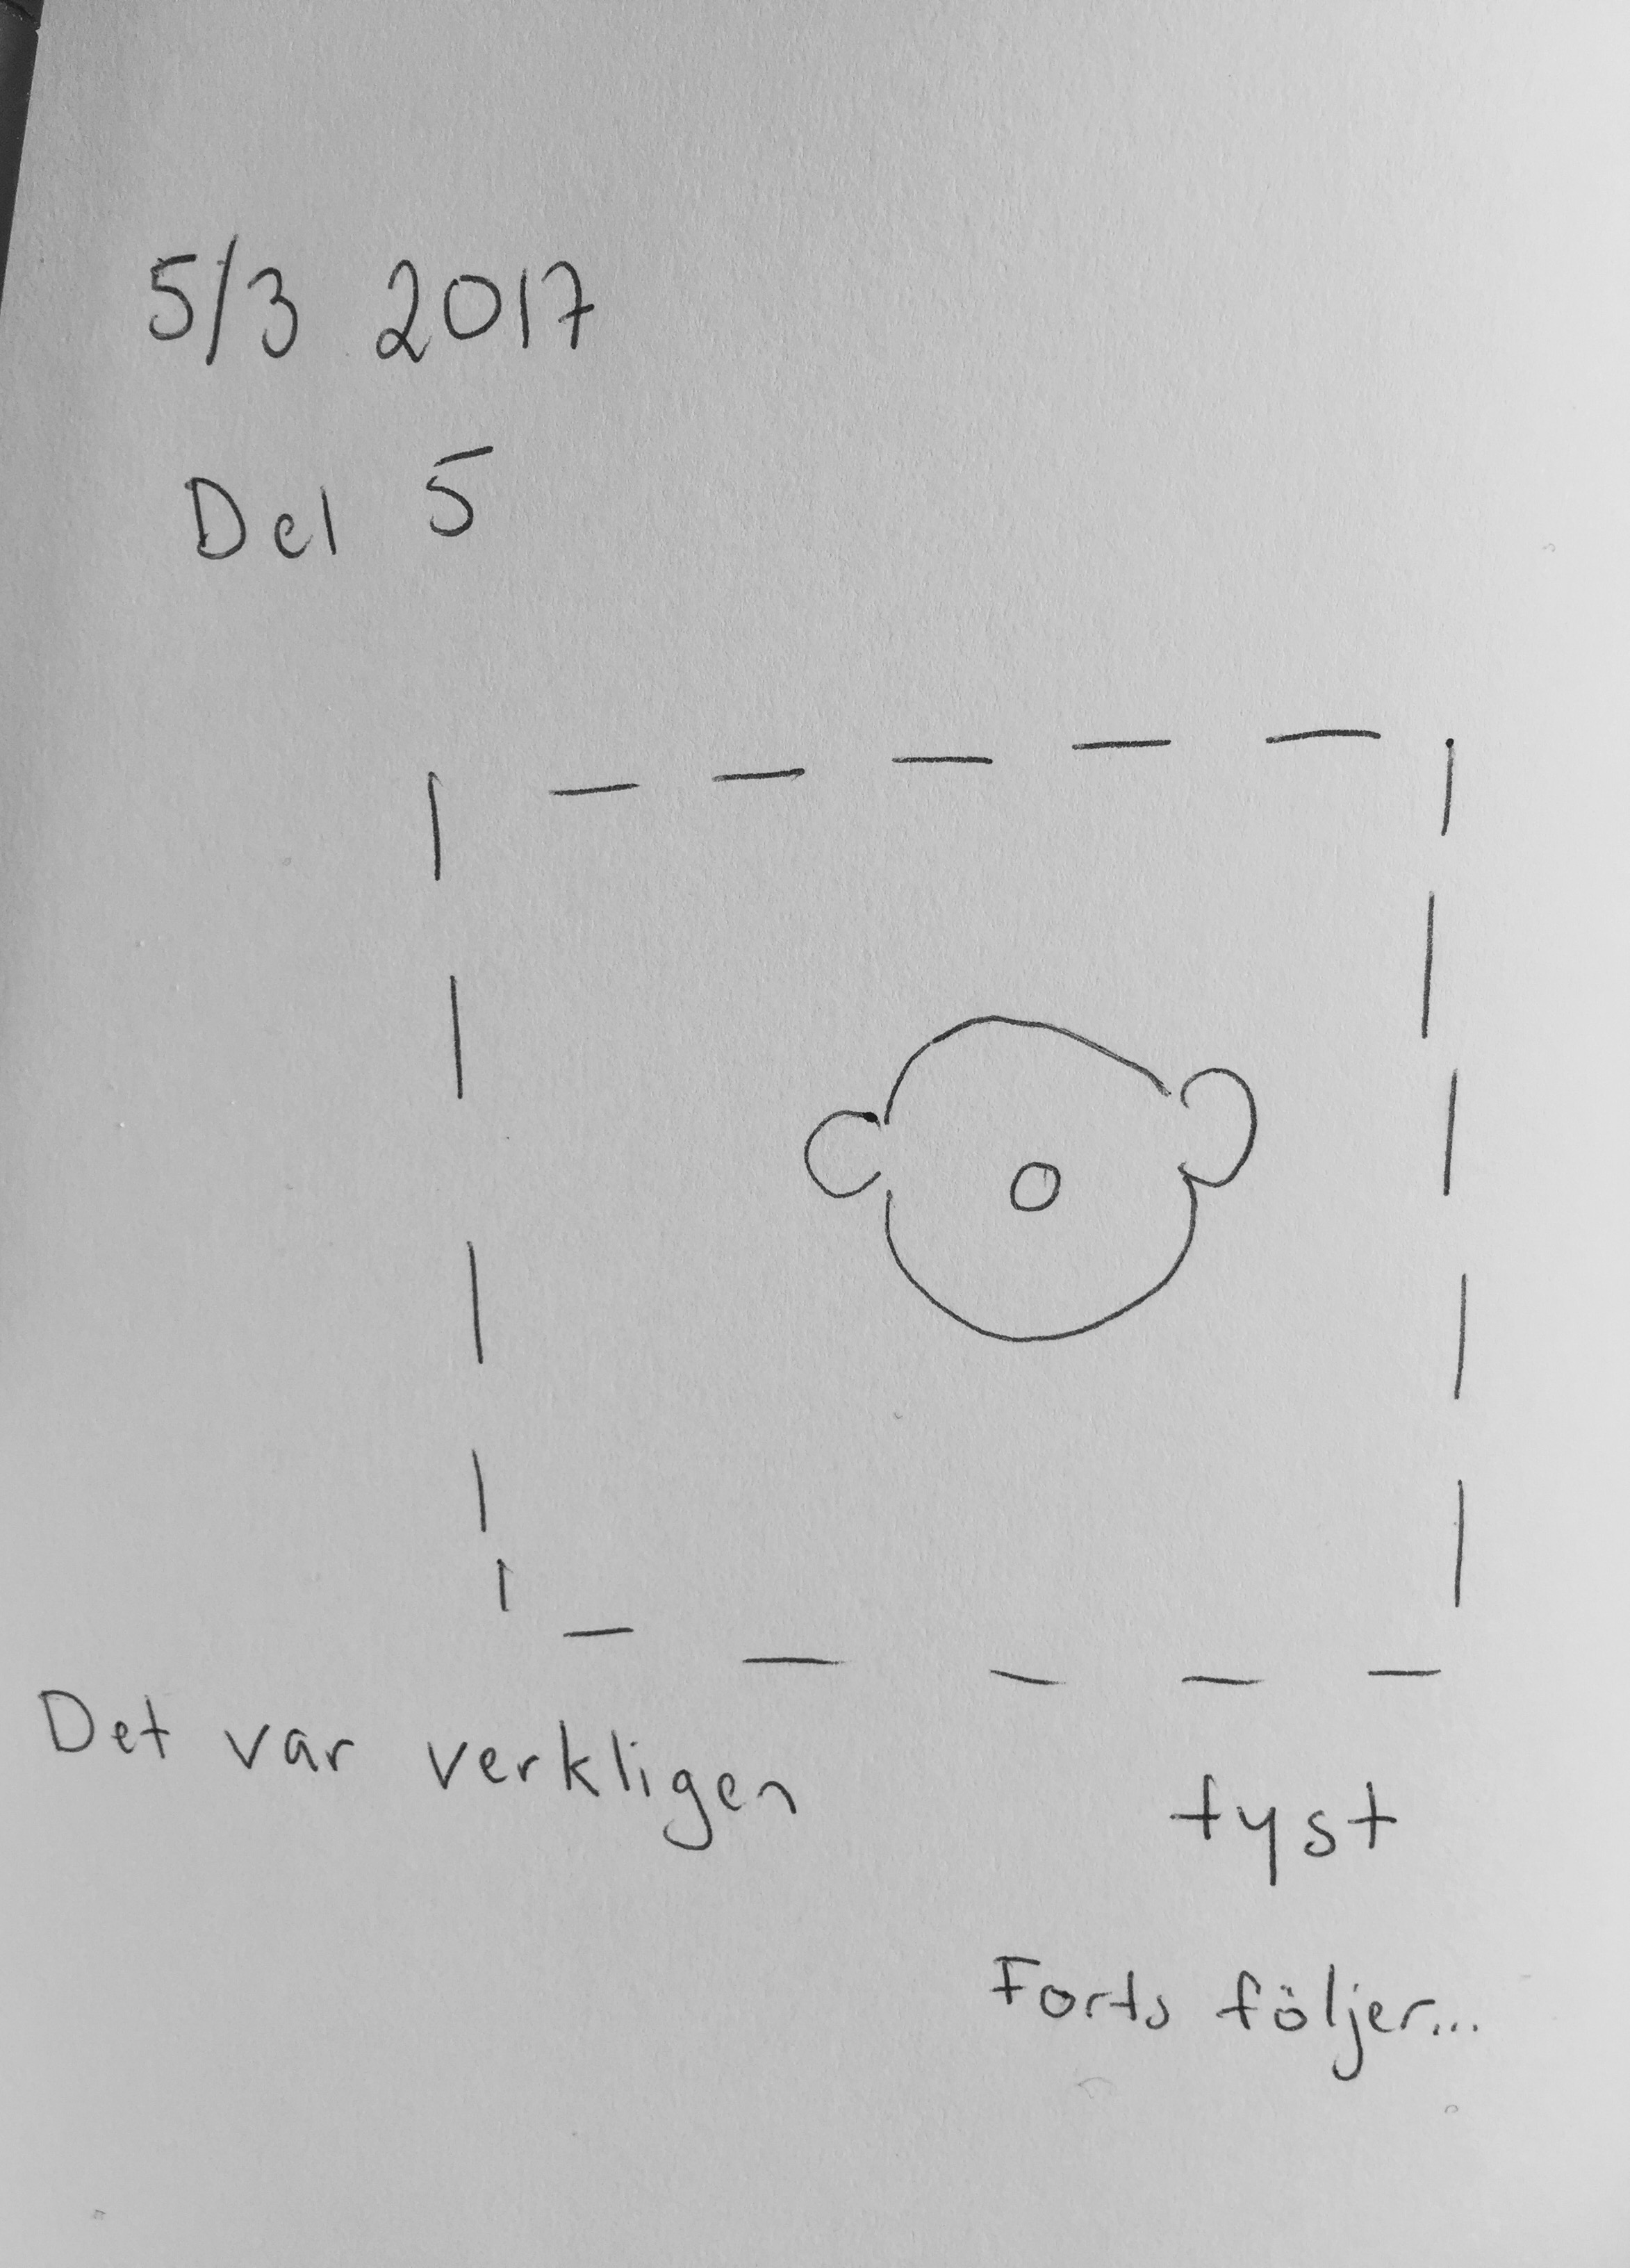 5/3 2017
Del 5
Det var verkligen tyst
Forts följer...